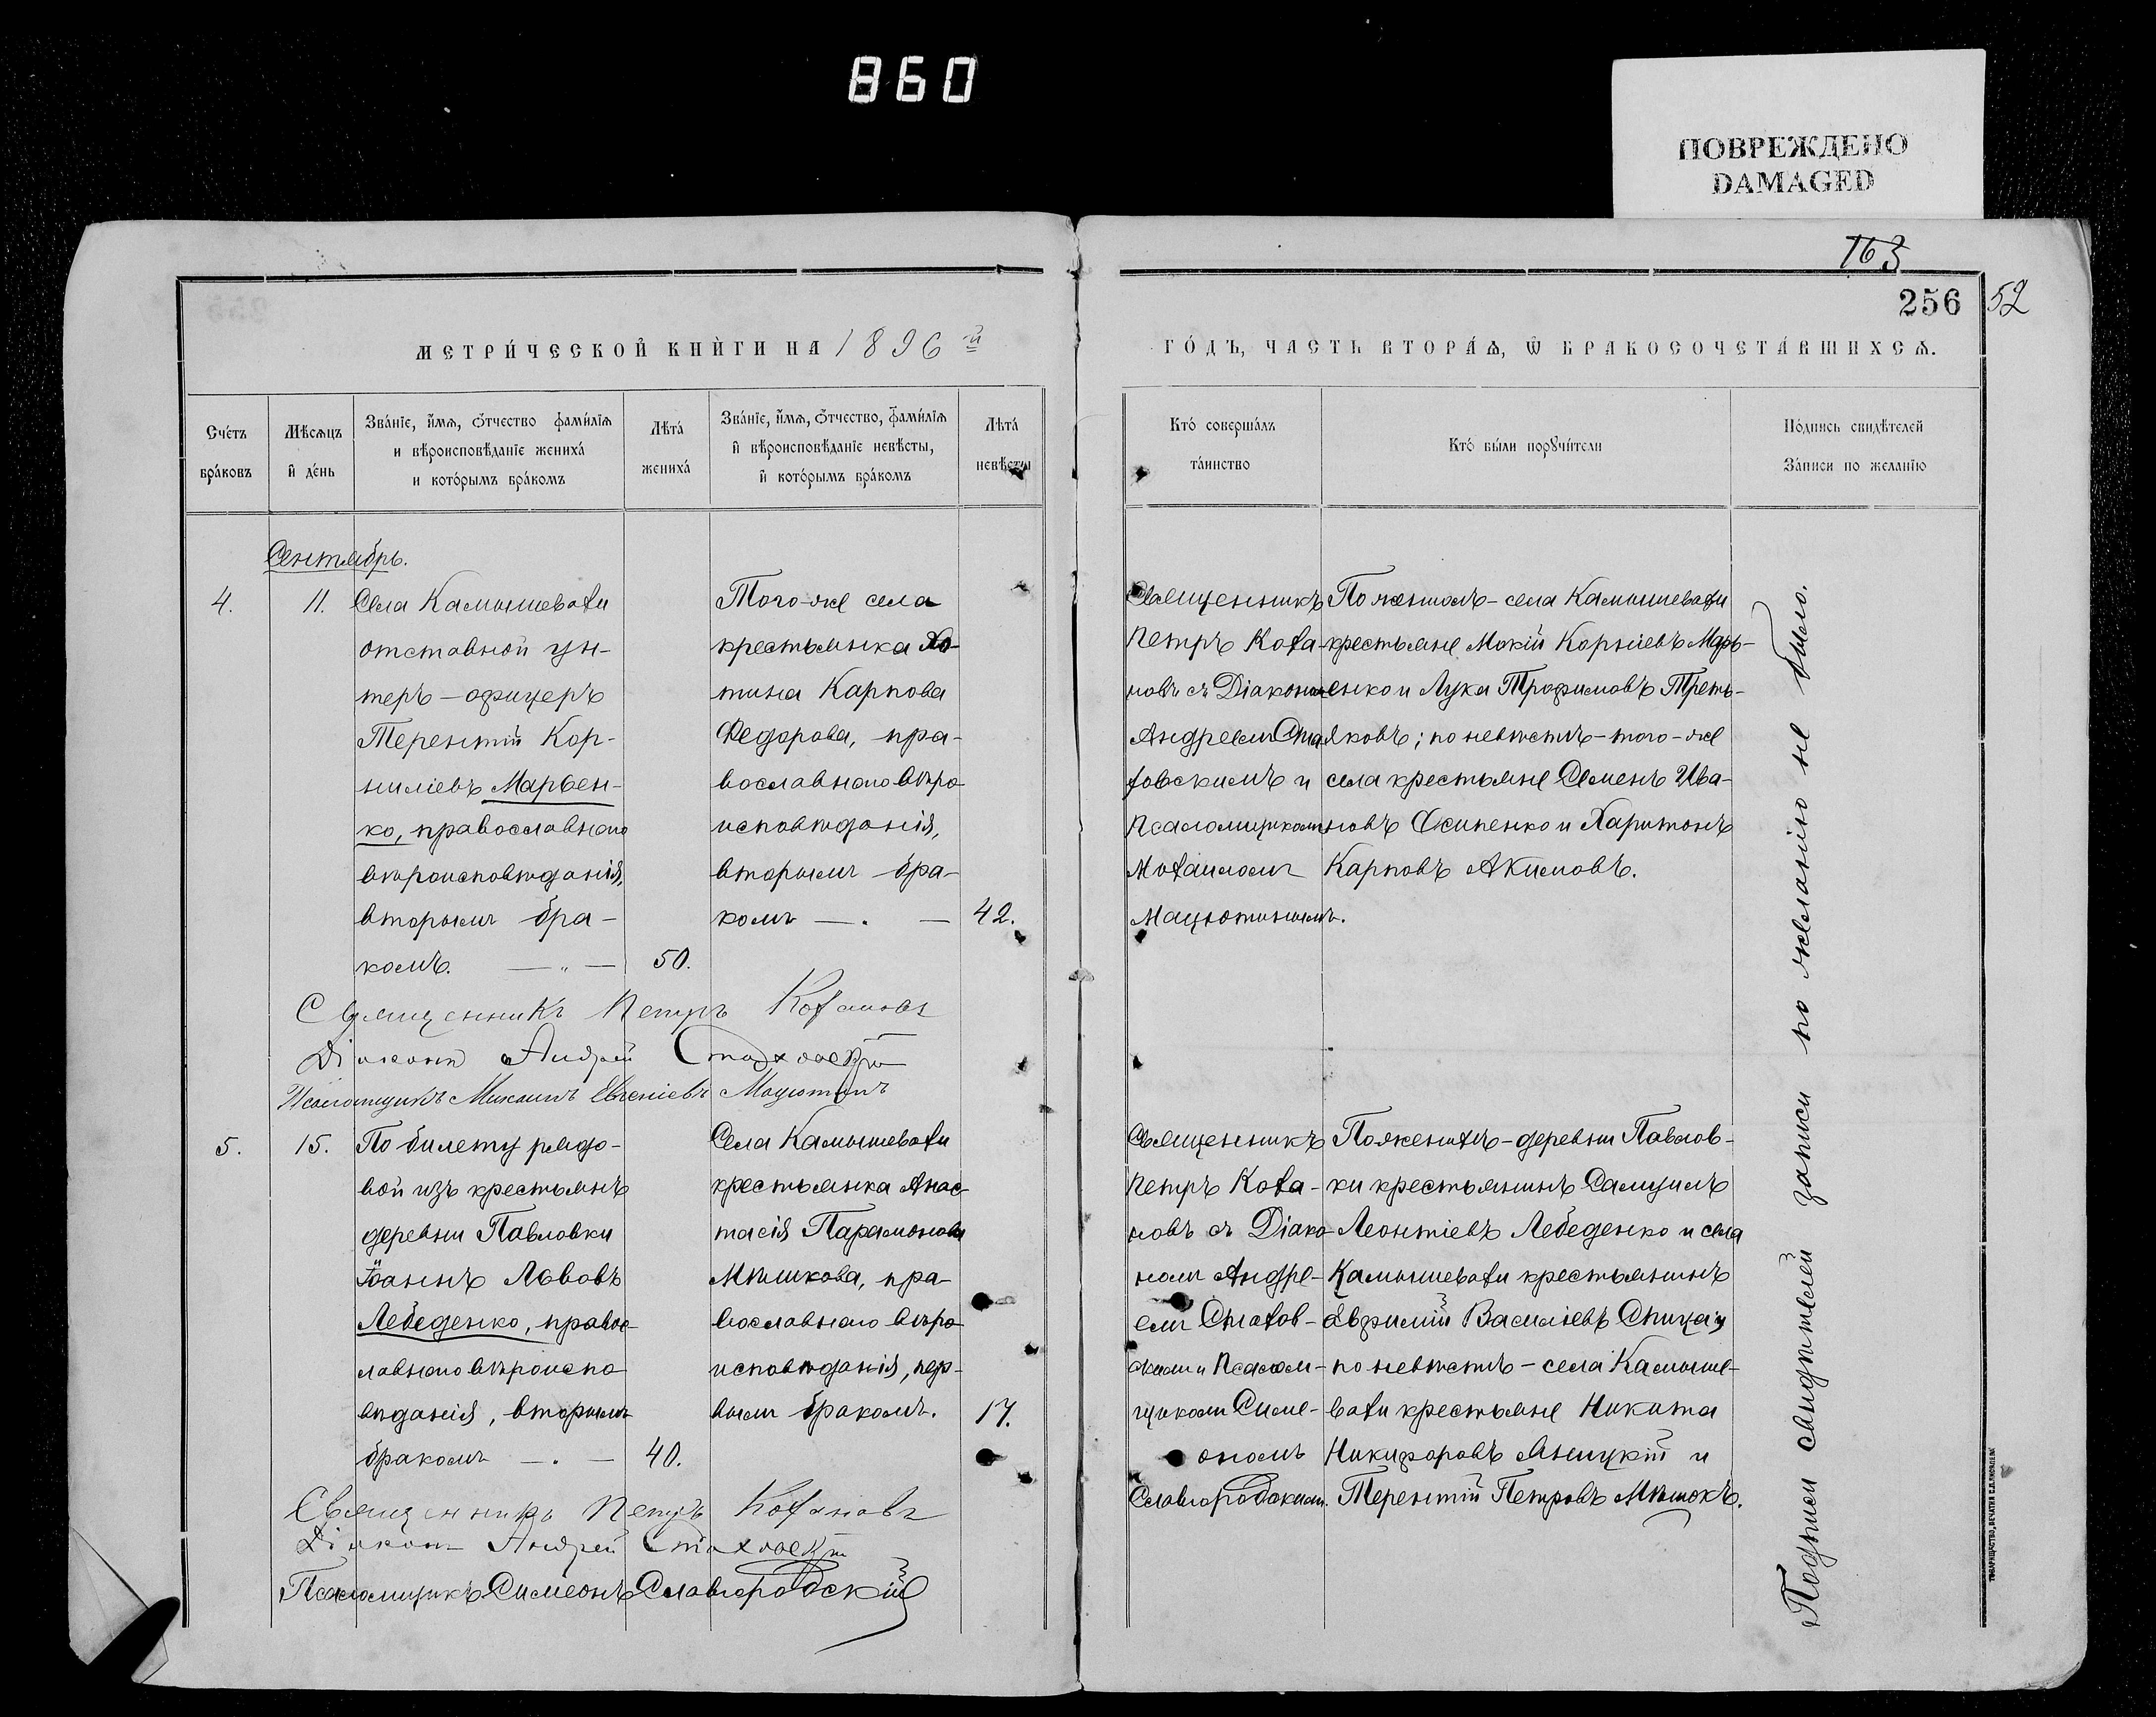 860
ПОВРЕЖДЕНО
DAMAGED
163
256
52
МЕТРИ́ЧЕСКОЙ КНИ́ГИ НА 1896 й
ГО́ДЪ, ЧАСТЬ ВТОРА́Ѧ, Ѽ БРАКОСОЧЕТА́ВШИХСѦ.
Сче́тъ
бра́ковъ
Мѣ́сѧцъ
и҆ де́нь
Зва́нїе, и҆́мѧ, ѻ҆́тчество фами́лїѧ
и вѣроисповѣ́данїе жениха́
и кото́рымъ бра́комъ
Лѣта́
жениха́
Зва́нїе, и҆́мѧ, ѻ҆́тчество, фами́лїѧ
и҆ вѣроисповѣ́данїе невѣ́сты,
и҆ кото́рымъ бра́комъ
Лѣта́
невѣ́сты
Кто́ соверша́лъ
та́инство
Кто́ бы́ли порꙋчи́тели
По́дпись свидѣ́телей
За́писи по жела́нїю
Сентябрь.
4.
11.
Села Камышевахи
отставной ун-
теръ-офицеръ
Терентій Кор-
ниліевъ Марьен-
ко, православнаго
вѣроисповѣданія,
вторымъ бра-
комъ. — „ —
50.
Того-же села
крестьянка Хо-
тина Карпова
Федорова, пра-
вославнаго вѣро
исповѣданія,
вторымъ бра-
комъ — . —
42.
Священникъ
Петръ Коха-
новъ съ Діакономъ
Андреемъ Ста
ховскимъ и
Псаломщикомъ
Михаиломъ
Мацютинымъ.
По женихѣ - села Камышевахи
крестьяне Мокій Корніевъ Марь-
енко и Лука Трофимовъ Треть-
яковъ; по невѣстѣ - того-же
села крестьяне Семенъ Ива-
новъ Осипенко и Харитонъ
Карповъ Акимовъ.
Священникъ Петръ Кохановъ
Діаконъ Андрей Стаховскій
Псаломщикъ Михаилъ Евгеніевъ Мацютинъ
5.
15.
По билету рядо-
вой изъ крестьянъ
деревни Павловки
Іоаннъ Львовъ
Лебеденко, правос-
лавнаго вѣроиспо
вѣданія, вторымъ
бракомъ — . —
40.
Села Камышевахи
крестьянка Анас-
тасія Парамонова
Мѣшкова, пра-
вославнаго вѣро
исповѣданія, пер-
вымъ бракомъ.
17.
Священникъ
Петръ Коха-
новъ съ Діако
номъ Андре-
емъ Стахов-
скимъ и Псалом-
щикомъ Симе-
ономъ
Славгородскимъ.
По женихѣ - деревни Павлов-
ки крестьянинъ Самуилъ
Леонтіевъ Лебеденко и села
Камышевахи крестьянинъ
Евфимій Василіевъ
по невѣстѣ - села Камыше-
вахи крестьяне Никита
Никифоровъ Яницкій и
Терентій Петровъ Мѣшокъ.
Священникъ Петръ Кохановъ
Діаконъ Андрей Стаховскій
Псаломщикъ Симеонъ Славгородскій
Подписи свидѣтелей записи по желанію не было.